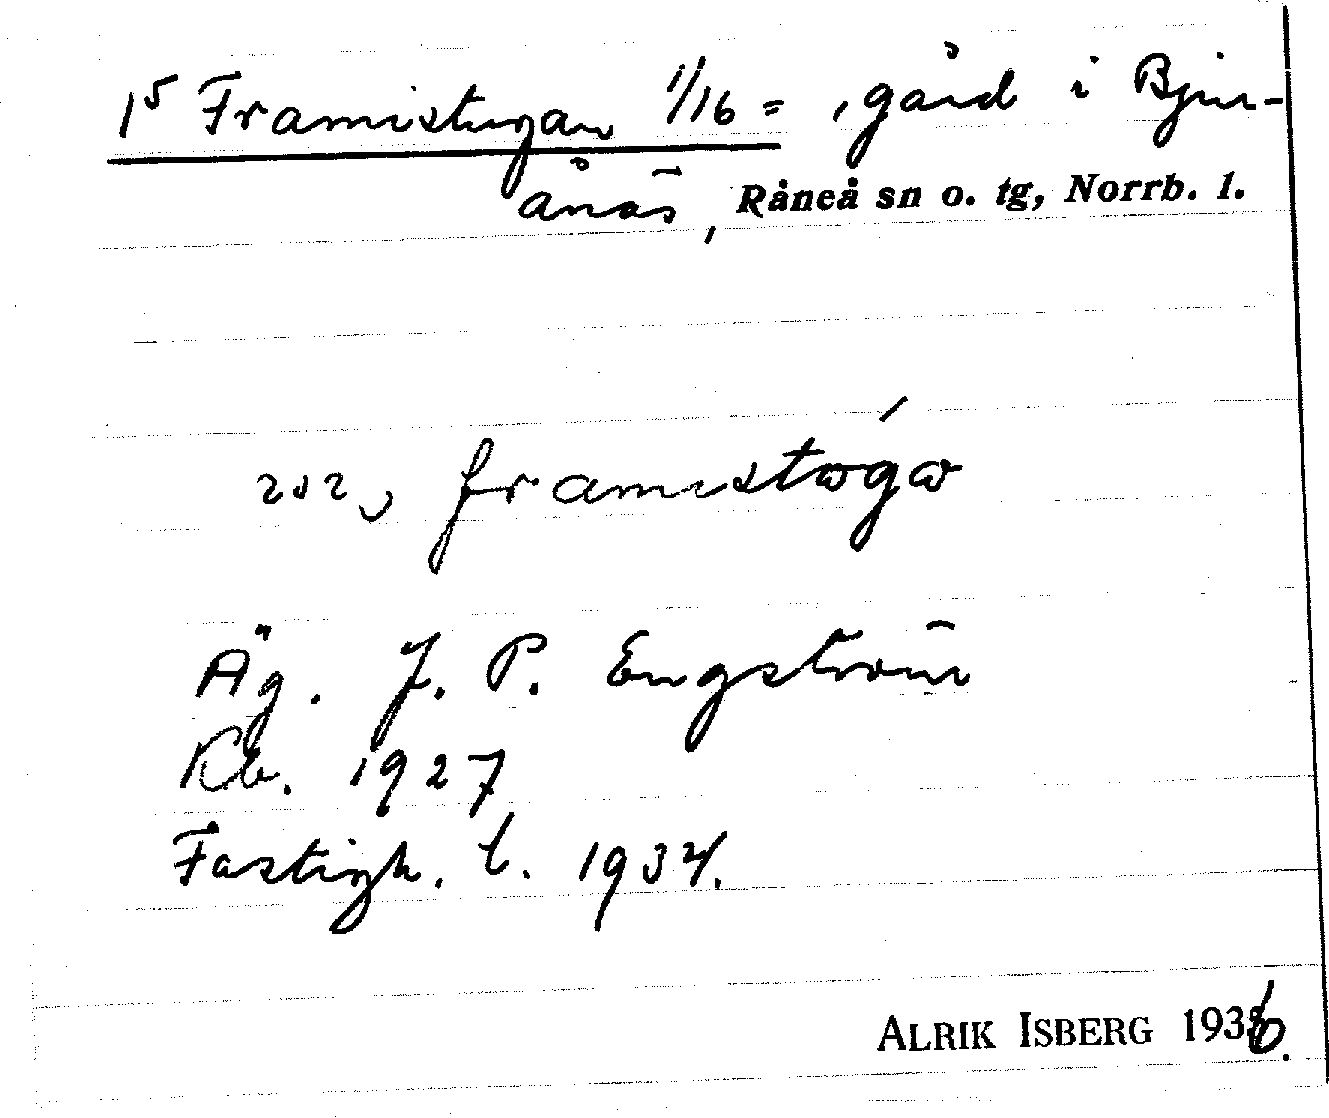 1⁵ Framistugan 1/16 = , gård i Bjur-
ånäs, Råneå sn o. tg, Norrb. l.
framistɷ́gɷ
Äg. J. P. Engström
Kb. 1927
Fastigh. l. 1934.
ALRIK ISBERG 1936.